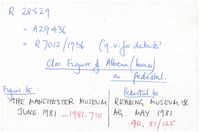 R 28529
= A29436
= R7012/1936 (q.v. for details)
Also Figure of Athena (bronze)
on pedestal.
Figure to
THE MANCHESTER MUSEUM
JUNE 1981 - 1981.710
Pedestal to
READING MUSEUM &
AG MAY 1981
90.81/125